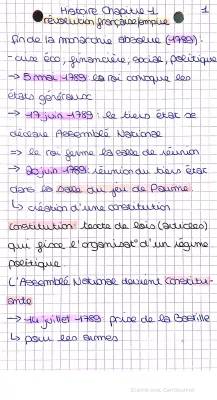 Histoire Chapitre 1
1
révolution française/empire
fin de la monarchie absolue (1789)
- crise éco, financière, social, politique
→ 5 mai 1789 le roi convoque les
états généraux
→ 17 juin 1789 : le tiers état se
déclare Assemblé Nationale
=> le roi ferme la salle de réunion
→ 20 juin 1789 réunion du tiers état
dans la salle du jeu de Paume
↳ création d'une constitution
constitution texte de lois (articles)
qui fixe l'organisat° d'un régime
politique
L'Assemblé National devient constitu-
ante
→ 14 juillet 1789 prise de la Bastille
↳ pour les armes